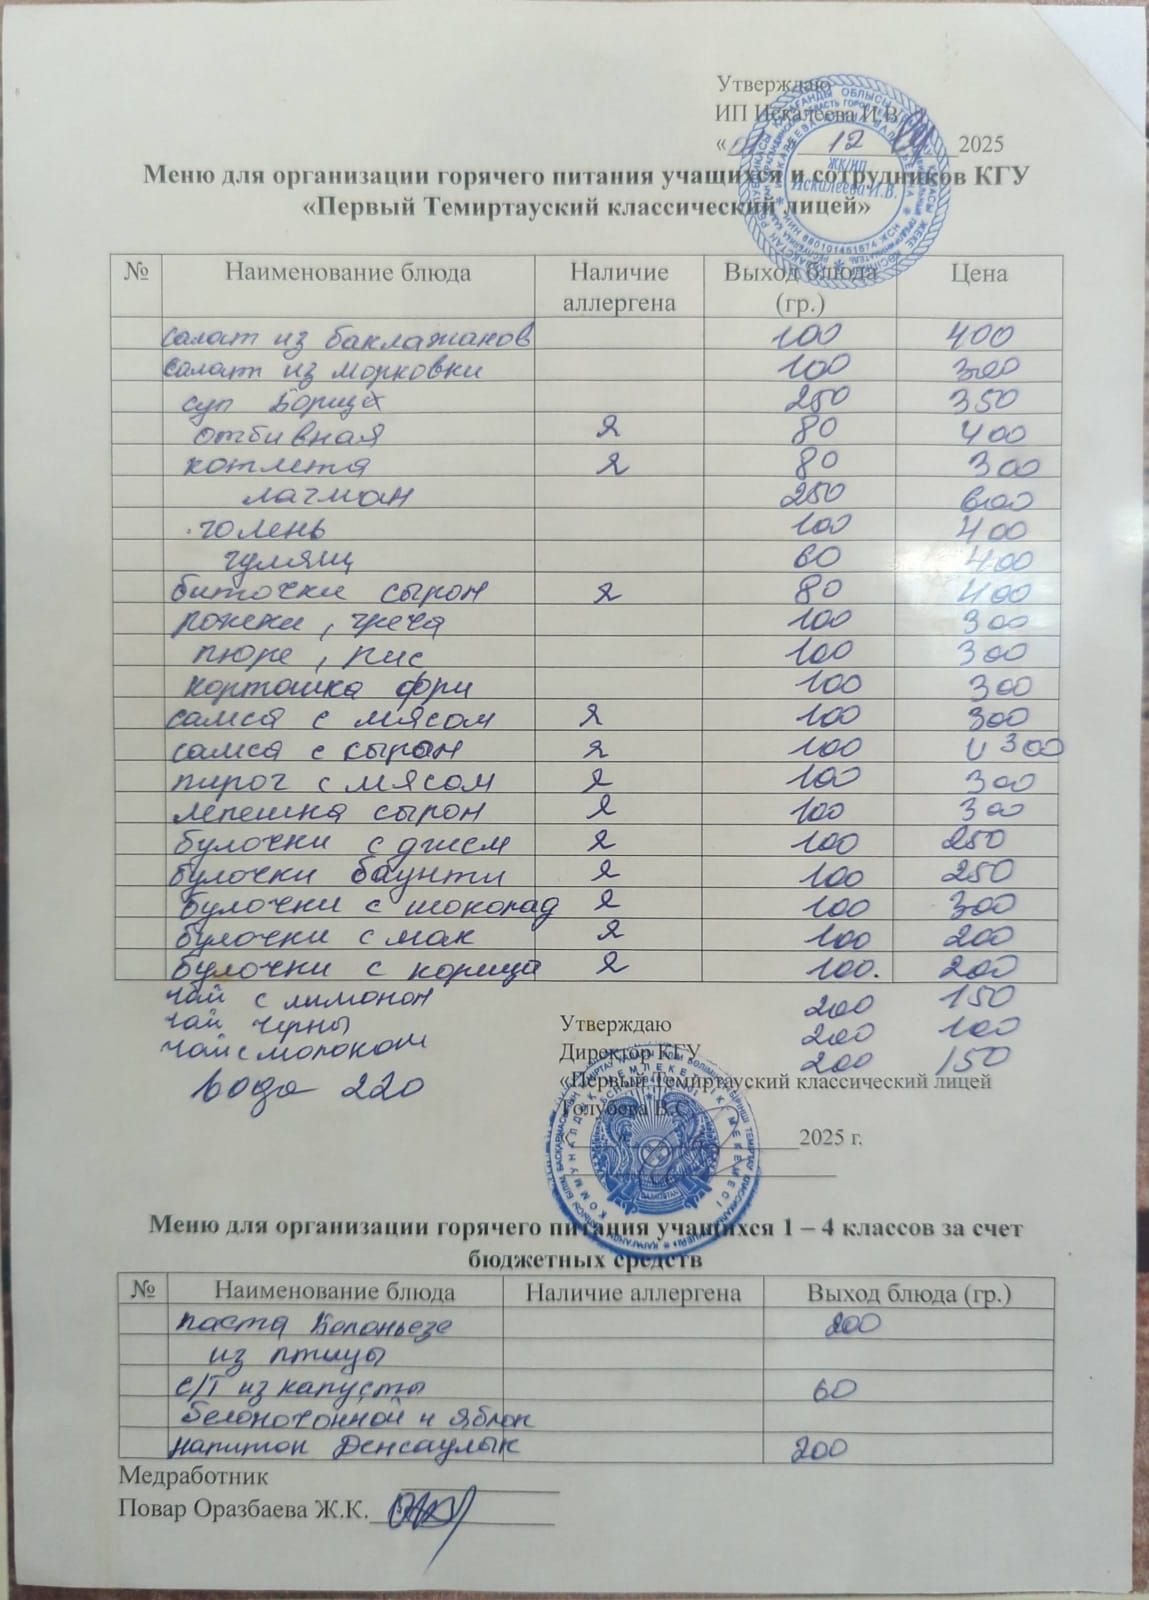 Утверждаю
ИП Искалеева И.В.
« 01 » 12 2025
Меню для организации горячего питания учащихся и сотрудников КГУ
«Первый Темиртауский классический лицей»
№ Наименование блюда Наличие аллергена Выход блюда (гр.) Цена
салат из баклажанов 100 400
салат из морковки 100 300
суп Борщ 250 350
отбивная Я 80 400
котлета Я 80 300
лагман 250 600
голень 100 400
гуляш 60 400
биточки сыром Я 80 400
рожки, греча 100 300
пюре, рис 100 300
картошка фри 100 300
самса с мясом Я 100 300
самса с сыром Я 100 300
пирог с мясом Я 100 300
лепешка сыром Я 100 300
булочки с джем Я 100 250
булочки баунти Я 100 250
булочки с шоколад Я 100 300
булочки с мак Я 100 200
булочки с корица Я 100. 200
чай с лимоном 200 150
чай черны 200 100
чай с молоком 200 150
вода 220
Утверждаю
Директор КГУ
«Первый Темиртауский классический лицей
Голубева В.С.
2025 г.
Меню для организации горячего питания учащихся 1 – 4 классов за счет
бюджетных средств
№ Наименование блюда Наличие аллергена Выход блюда (гр.)
паста Болоньезе 200
из птицы
с/т из капусты 60
белокочонной и яблок
напиток Денсаулык 200
Медработник
Повар Оразбаева Ж.К.
ЖК/ИП
Искалеева И.В.